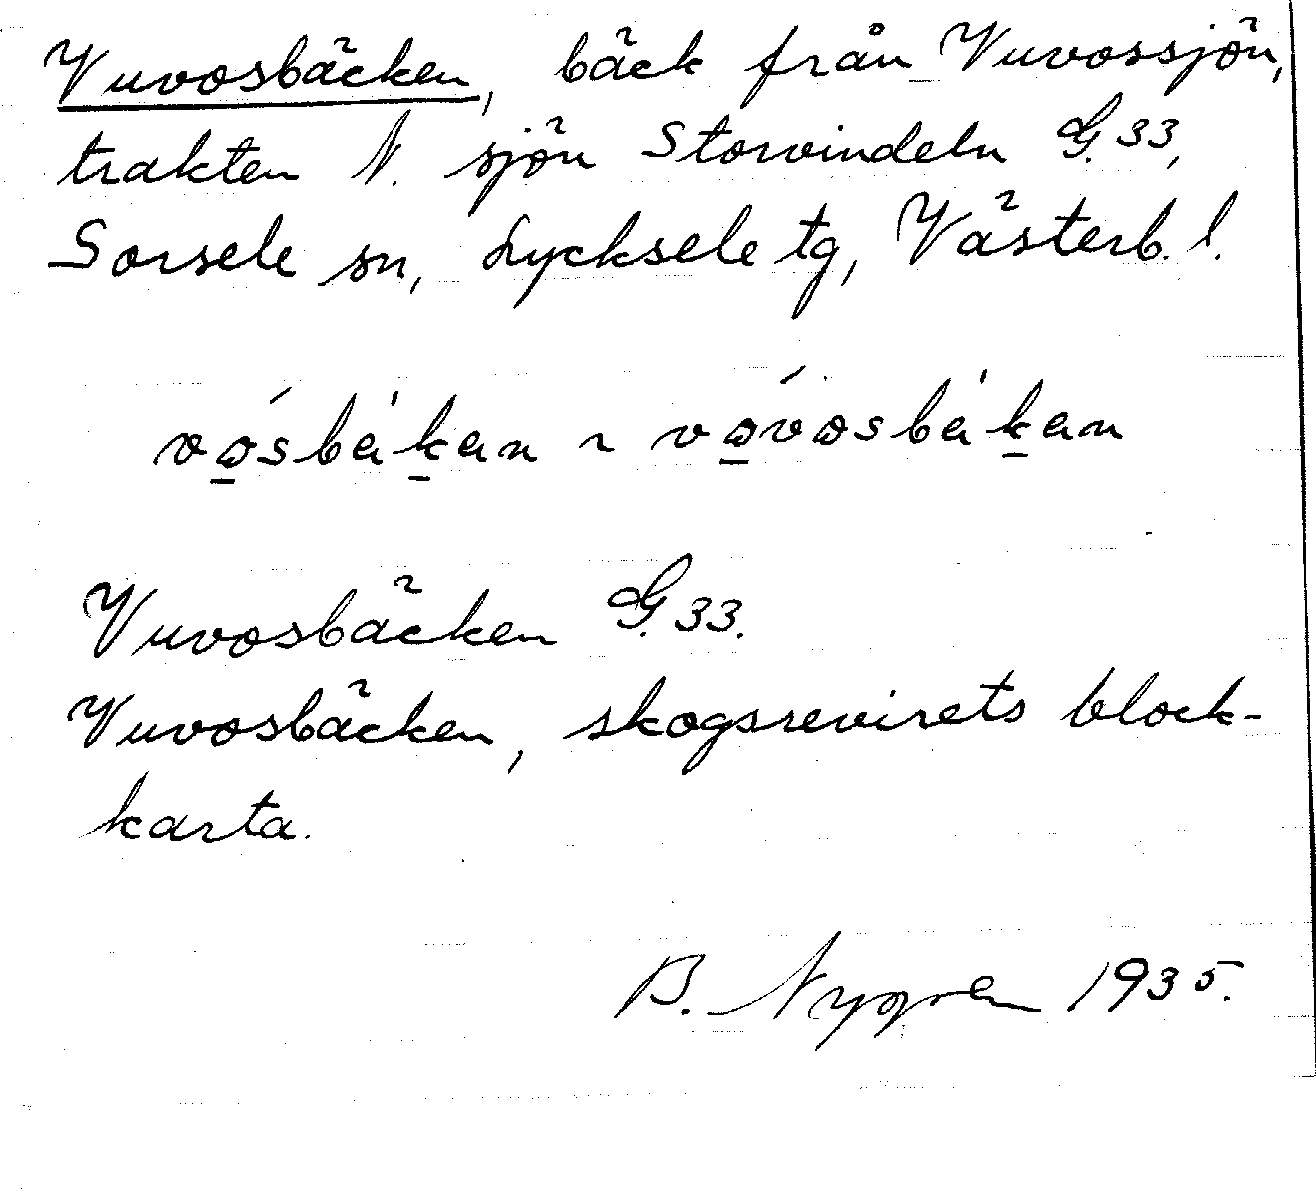 Vuvosbäcken, bäck från Vuvossjön,
trakten N. sjön Storvindeln G. 33,
Sorsele sn, Lycksele tg, Västerb. l.
vo̲śbák̲an ~ vo̲v́osbák̲an
Vuvosbäcken G. 33.
Vuvosbäcken, skogsrevirets block-
karta.
B. Nygren 1935.